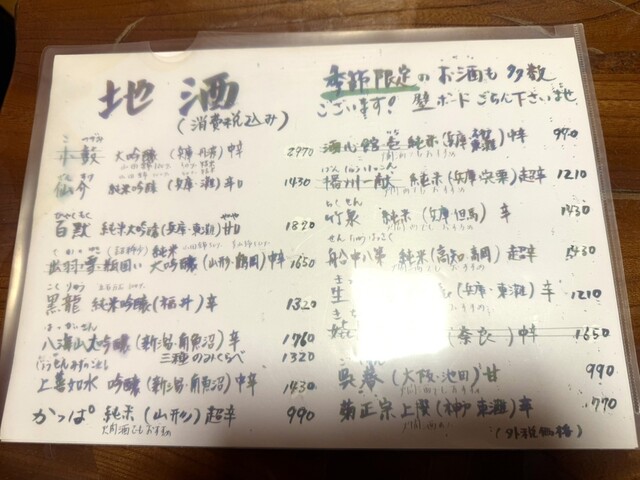 地酒
(消費税込み)
季節限定のお酒も多数
ございます! 壁ボードごらん下さいませ
小鼓 大吟醸 (兵庫・丹波) 中辛 2970
仙介 純米吟醸 (兵庫・灘) 辛口 1430
百黙 純米大吟醸 (兵庫・東灘) 甘口 1320
出羽雪 瓶囲い 大吟醸 (山形・鶴岡) 中辛 1650
こくりゅう
黒龍 純米吟醸 (福井) 辛 1320
はっかいさん
八海山大吟醸 (新潟・南魚沼) 辛 1760
三種のみくらべ 1320
じょうぜんみずのごとし
上善如水 吟醸 (新潟・南魚沼) 中辛 1430
かっぱ 純米 (山形) 超辛 990
燗酒もおすすめ
酒心館 壱 純米 (兵庫 中辛 990
播州一献 純米 (兵庫・宍粟) 超辛 1210
竹泉 純米 (兵庫・但馬) 辛 1430
せんちゅうはっさく
船中八策 純米 (高知・高岡) 超辛 1430
生 (兵庫・東灘) 辛 1210
(奈良) 中辛 1650
呉春 (大阪・池田) 甘 990
菊正宗 上撰 (神戸・東灘) 辛 770
(外税価格)